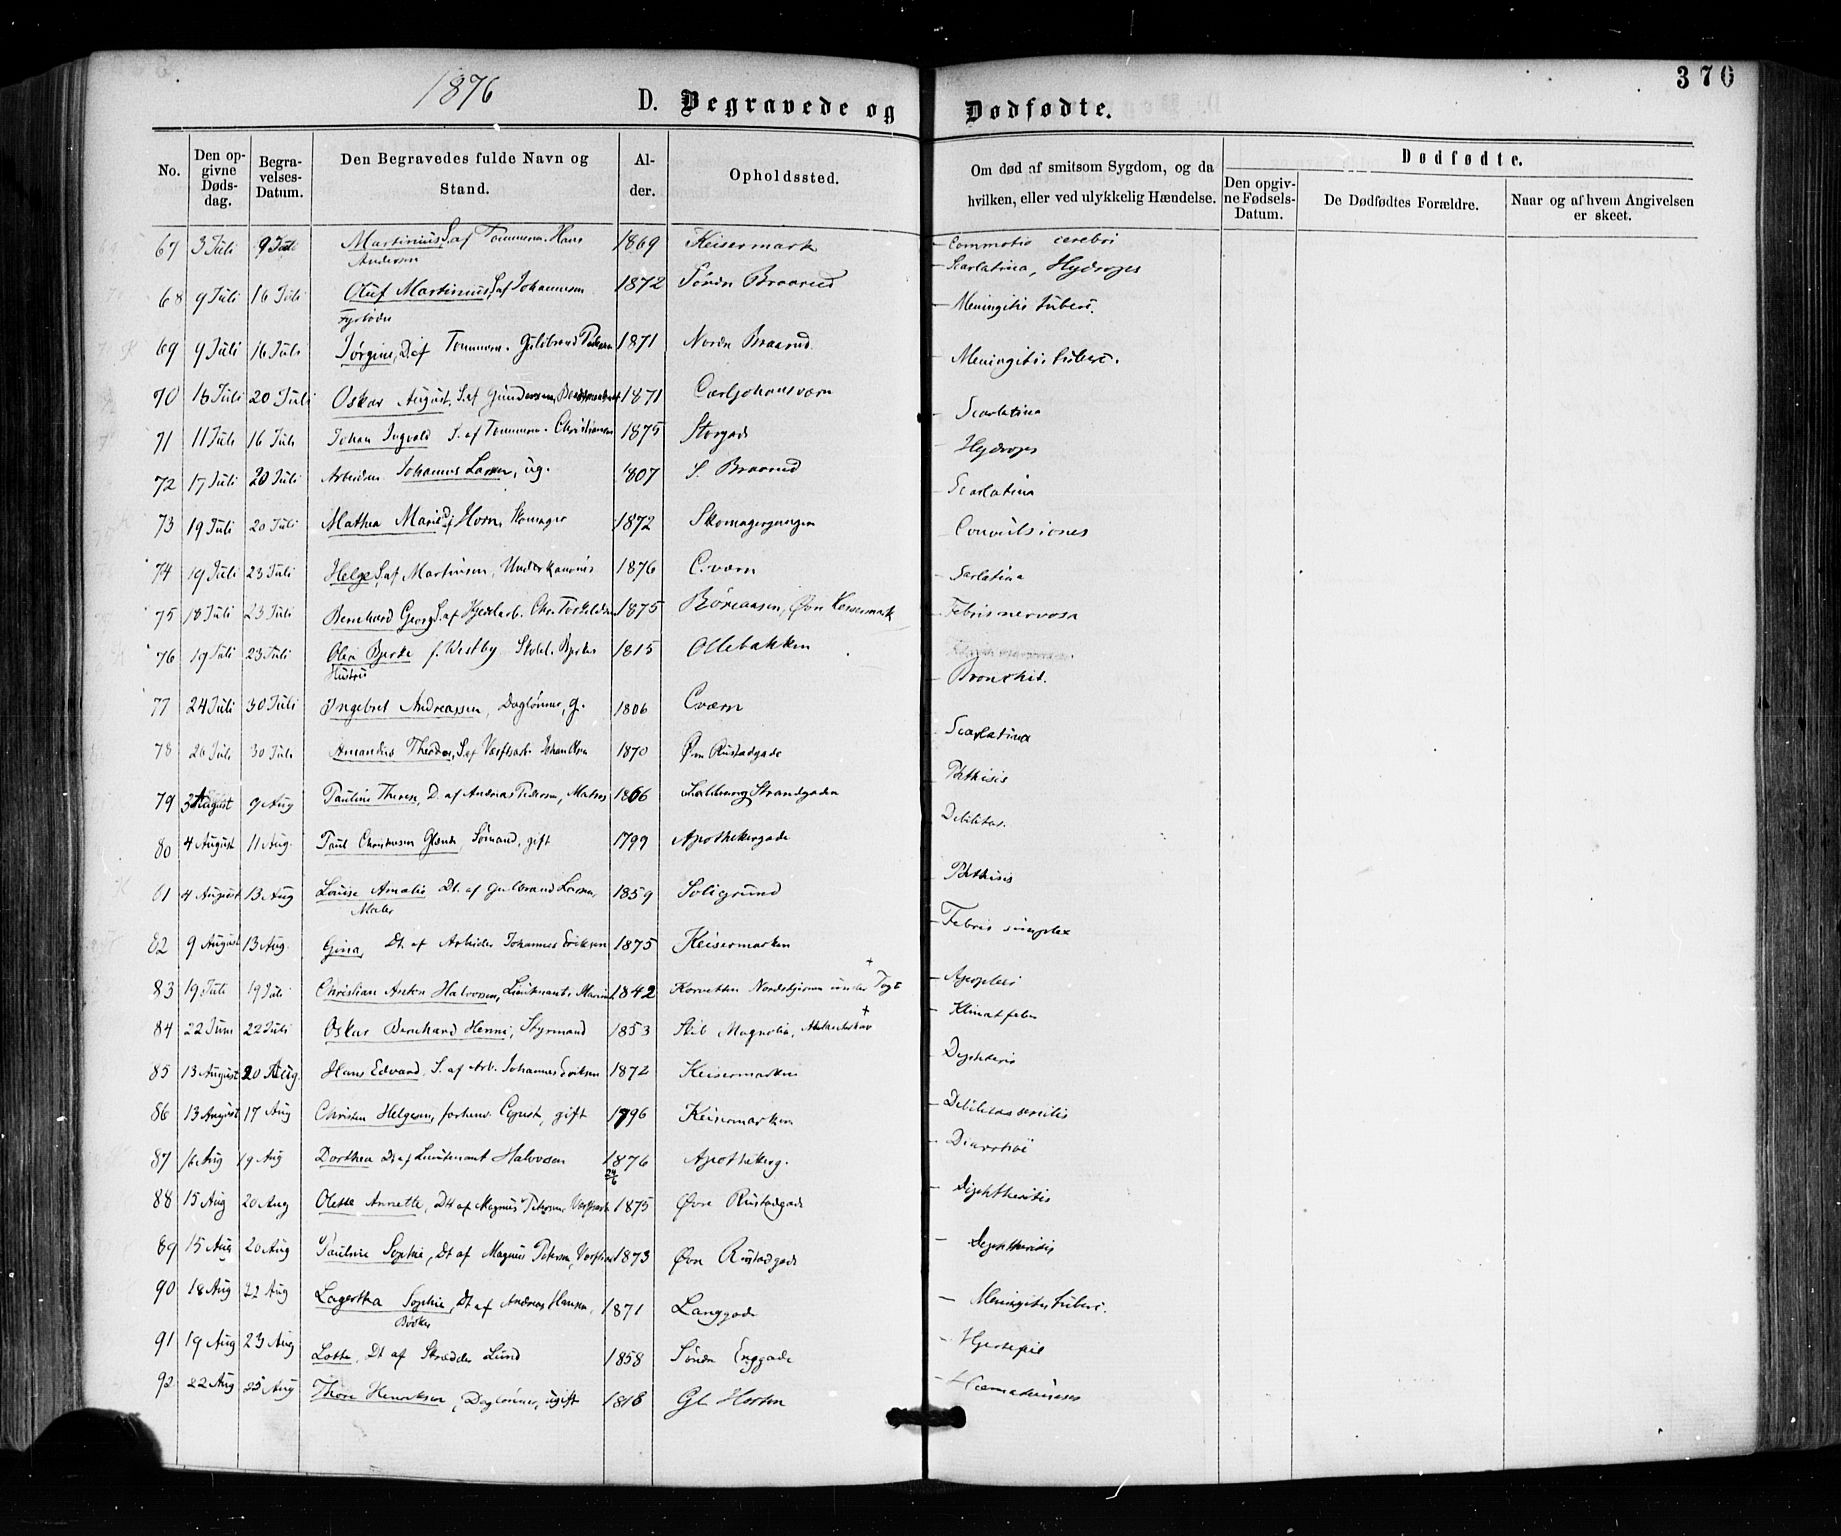 1876
D. Begravede og Dødfødte.
370
No.
Den opgivne Dødsdag.
Begravelses-Datum.
Den Begravedes fulde Navn og Stand.
Alder.
Opholdssted.
Om død af smitsom Sygdom, og da hvilken, eller ved ulykkelig Hændelse.
Dødfødte.
Den opgivne Fødsels-Datum.
De Dødfødtes Forældre.
Naar og af hvem Angivelsen er skeet.
67 3 Juli 9 Juli Martinius, S. af Tømmerm. Hans 1869 Keisermark Commotio cerebri
Andersen
Scarlatina, Hydrops
68 9 Juli 16 Juli Oluf Martinius, S. af Johannesen 1872 Søndre Braarud Meningitis tuberc.
Fyrbøder
69 9 Juli 16 Juli Jørgine, D. af Tømmerm. Gulbrand 1871 Nordre Braarud Meningitis tuberc.
70 16 Juli 20 Juli Oskar August, S. af Gundersen 1871 Carljohansværn Scarlatina
71 11 Juli 16 Juli Johan Ingvald S. af Tømmerm. Christiansen 1875 Storgade Hydrops
72 17 Juli 20 Juli Arbeider Johannes Larsen, ug. 1807 S. Braarud Scarlatina
73 19 Juli 20 Juli Mathea Marie D. af Horn, Skomager 1872 Skomagergangen Convulsiones
74 19 Juli 23 Juli Helge, S. af Martinsen, Underkanoner 1876 C.værn Scarlatina
75 18 Juli 23 Juli Bernhard Georg S. af Chr. Torkildsen 1875 Øvre Keisermark Febris nervosa
76 19 Juli 23 Juli Olea Bjerke f. Westby 1815 Ollebakken
Hustru
Bronchit.
77 24 Juli 30 Juli Ingebret Andreassen, Daglønner, g. 1806 C.værn
78 26 Juli 30 Juli Amandus Theodor, S. af Værftsarb. Johan Olsen 1870 Øvre Rustadgade Scarlatina
79 3 August 9 Aug Pauline Therese, D. af Andreas Pedersen, Matros 1866 Strandgaden Phthisis
80 4 August 11 Aug. Paul Christensen, Sømand, gift 1799 Apothekergade Debilitas.
81 4 August 13 Aug Louise Amalie Dt. af Gulbrand Larsen, 1859 Soligrund Phthisis
Maler
82 9 August 13 Aug. Gina, Dt. af Arbeider Johannes Eriksen 1875 Keisermarken Febris simplex
83 19 Juli 19 Juli Christian Anton Halvorsen, Lieutenant i Marinen 1842 Korvetten Nordstjernen under Togt Apoplexi
84 22 Juni 22 Juli Oskar Bernhard Henni, Styrmand 1853 Skib Magnolia, Klimatfeber
85 13 August 20 Aug. Hans Edvard, S. af Arb. Johannes Eriksen 1872 Keisermarken
86 13 August 17 Aug Christen Helgesen, forhenv. gift 1796 Keisermarken Debilitas senilis
87 16 Aug 19 Aug Dorthea Dt af Lieutenant Halvorsen 1876 Apothekerg. Diarrhoi
24/6
88 15 Aug 20 Aug Olette Annette, Dt af Magnus Petersen 1875 Øvre Rustadgade Diphtheritis
89 15 Aug 20 Aug Pauline Sophie, Dt af Magnus Petersen 1873 Øvre Rustadgade Diphtheritis
90 18 Aug 22 Aug Lagertha Sophie, Dt af Andreas Hansen, 1871 Langgade Meningitis tuberc.
Bødker
91 19 Aug 23 Aug Lotte, Dt af Skrædder Lund 1858 Søndre Enggade Hjertefeil
92 22 Aug 25 Aug Thore Henriksen, Dagløнner, ugift 1818 Gl. Horten Hæmatemeses